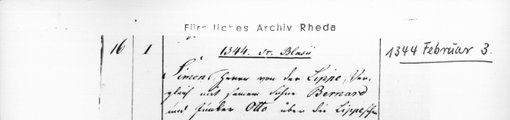 Fürstliches Archiv Rheda
16 1 1344. St. Blasii 1344 Februar 3.
Simon, Herr von der Lippe, Ver-
gleich mit seinem Sohne Bernard
und Junker Otto über die Lippeschen